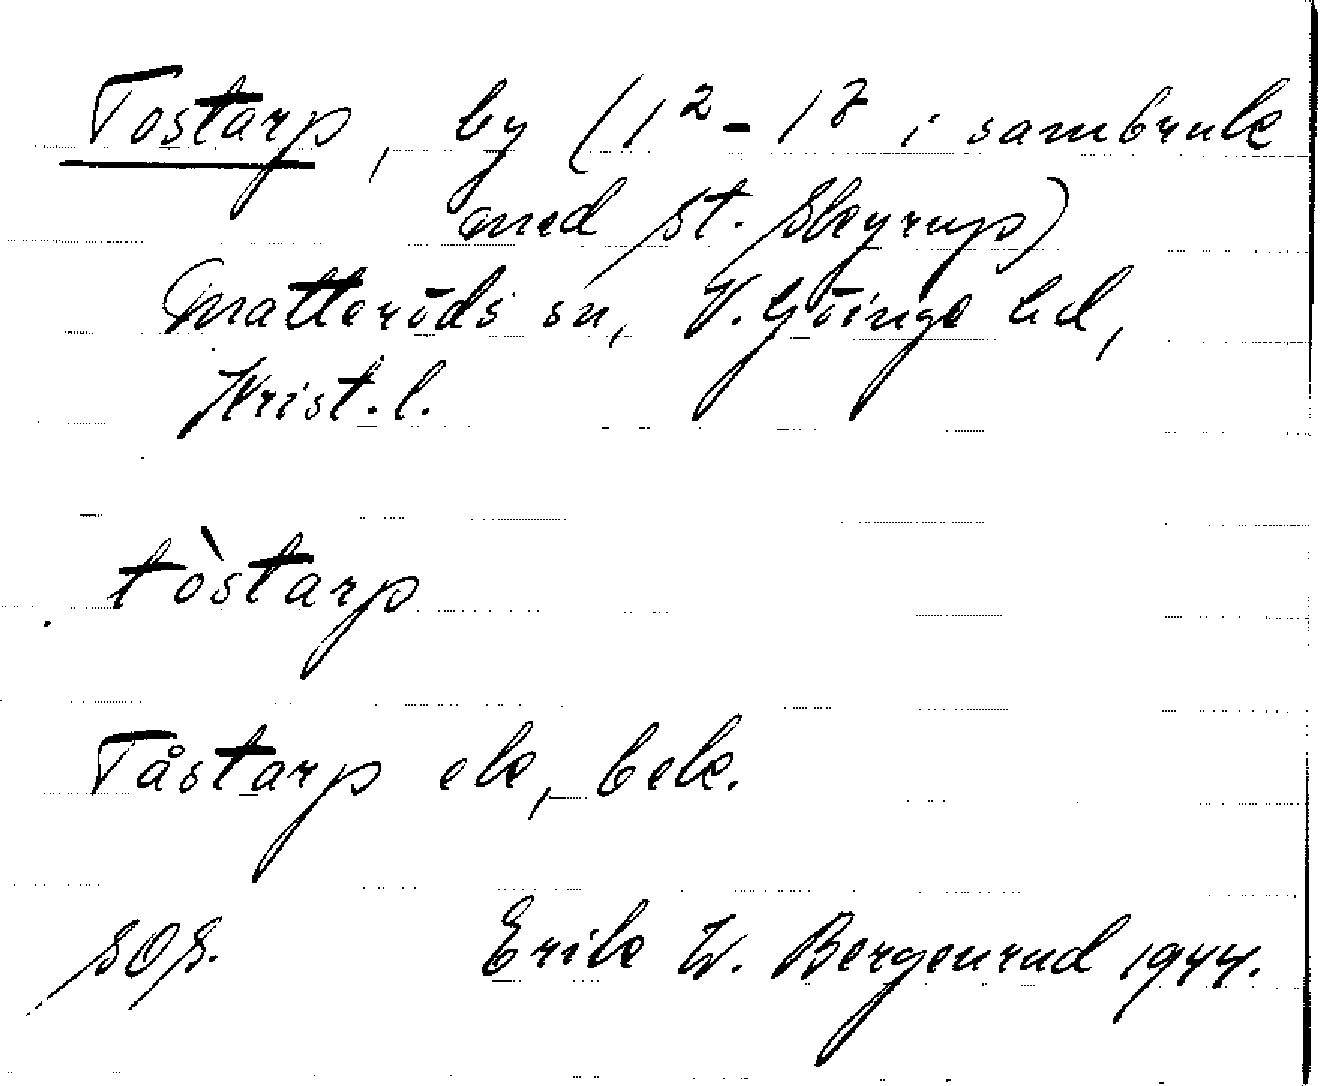 Tostarp, by (1² - 1⁷ i sambruk
med St. Skyrup)
Matteröds sn, V. Göinge hd,
Krist. l.
tòstarp
Tåstarp ek, bek.
SOS. Erik W. Bergenrud 1944.